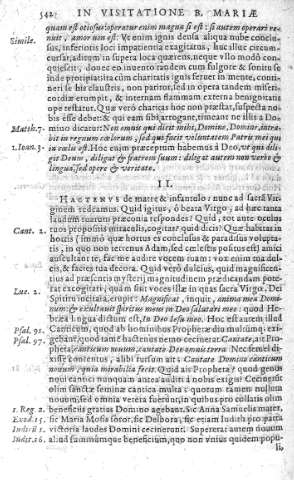 542 IN VISITATIONE B. MARIÆ
quam est otiosus: operatur enim magna si est: si autem operari re-
Simile. nuit, amor non est. Vt enim ignis densa aliqua nube conclu-
sus, inferioris loci impatientia exagitatus, huc illuc circum-
cursat, aditum in supera loca quæritans, neque vllo modo con-
quiescit, donec eo inuento tandem cum fulgore & sonitu
inde prorupiat: ita cùm charitatis ignis feruet in mente, conti-
neri se his claustris, non patitur, sed in opera tandem miseri-
cordiæ erumpit, & internam flammam externa benignitate
ope testatur. Que verò charitas hoc non præstat, suspecta no-
bis esse debet: & qui eam sibi arrogant, timeant ne illis à Do-
Matth. 7. mino dicatur: Non omnis qui dicit mihi, Domine, Domine, intra-
bit in regnum cælorum, sed qui facit voluntatem Patris mei qui
1. Ioan. 3. in cælis est. Hoc enim præceptum habemus à Deo, vt qui dili-
git Deum, diligat & fratrem suum: diligat autem non verbo &
lingua, sed opere & veritate.
II.
HACTENVS de matre & infantulo: nunc ad sacrā Vir-
ginem redeamus. Quid igitur, ô beata Virgo, ad hæc tanta
laudum tuarum præconia respondes? Quid, tot ante oculos
Cant. 2. tuos propositis miraculis, cogitas? quid dicis? Quæ habitas in
hortis (immò quæ hortus es conclusus & paradisus volupta-
tis, in quo non terrenus Adam, sed cælestis positus est) amici
auscultant te, fac me audire vocem tuam: vox enim tua dul-
cis, & facies tua decora. Quid verò dulcius, quid magnificen-
tius ad præsentis mysterij magnitudinem prædicandam pote-
rat excogitari, quàm sint voces illæ in quas sacra Virgo, Dei
Luc. 2. Spiritu incitata, erupit: Magnificat, inquit, anima mea Domi-
num: & exultauit spiritus meus in Deo salutari meo: quod He-
bræa lingua dictum est, In Deo Iesu meo. Hoc est autem illud
Psal. 95. Canticum, quod ab hominibus Prophetæ diu multumq; exi-
Psal. 97. gebant, quod tamen hactenus nemo cecinerat. Cantate, ait Pro-
pheta, canticum nouum, cantate Deo omnis terra. Nec semel di-
xisse contentus, alibi rursum ait: Cantate Domino canticum
nouum, quia mirabilia fecit. Quid ais Propheta? quod genus
noui cantici nunquam antea auditi à nobis exigis? Cecinerūt
olim sanctæ feminæ cantica multa: quorum tamen nullum
nouum, sed omnia vetera fuerunt, in quibus pro collatis olim
1. Reg. 2. beneficiis gratias Domino agebant. Sic Anna Samuelis mater,
Exod. 15. sic Maria Mosis soror, sic Delbora, sic etiam Iudith pro parta
Iudic. 5. victoria laudes Domini cecinerunt. Supererat autem nouum
Iudit. 16. aliud summumque beneficium, quo non vnius quidem popu-
li,